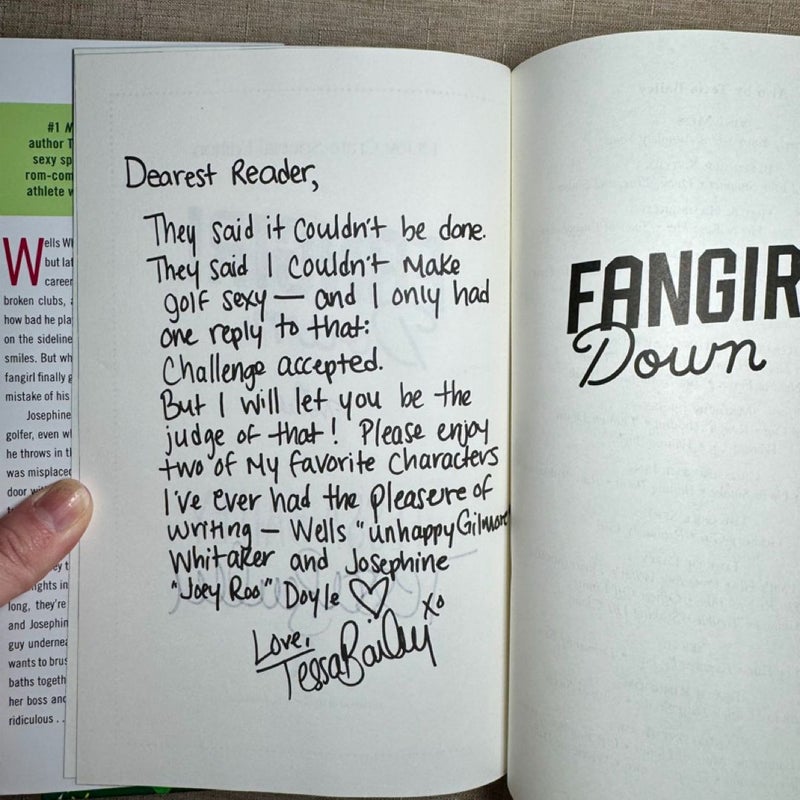 #1 N
author T
sexy sp
rom-com
athlete w
Wells Wh
but lat
career
broken clubs, a
how bad he pla
on the sideline
smiles. But wh
fangirl finally g
mistake of his
Josephine
golfer, even wh
he throws in th
was misplaced
door
ights in
long, they're
and Josephin
guy undernea
wants to brus
baths togeth
her boss and
ridiculous . .
Dearest Reader,
They said it couldn't be done.
They said I couldn't make
golf sexy — and I only had
one reply to that:
Challenge accepted.
But I will let you be the
judge of that! Please enjoy
two of my favorite characters
I've ever had the pleasure of
writing — Wells "unhappy Gilmore"
Whitaker and Josephine
"Joey Roo" Doyle
xo
Love,
Tessa Bailey
FANGIR
Down